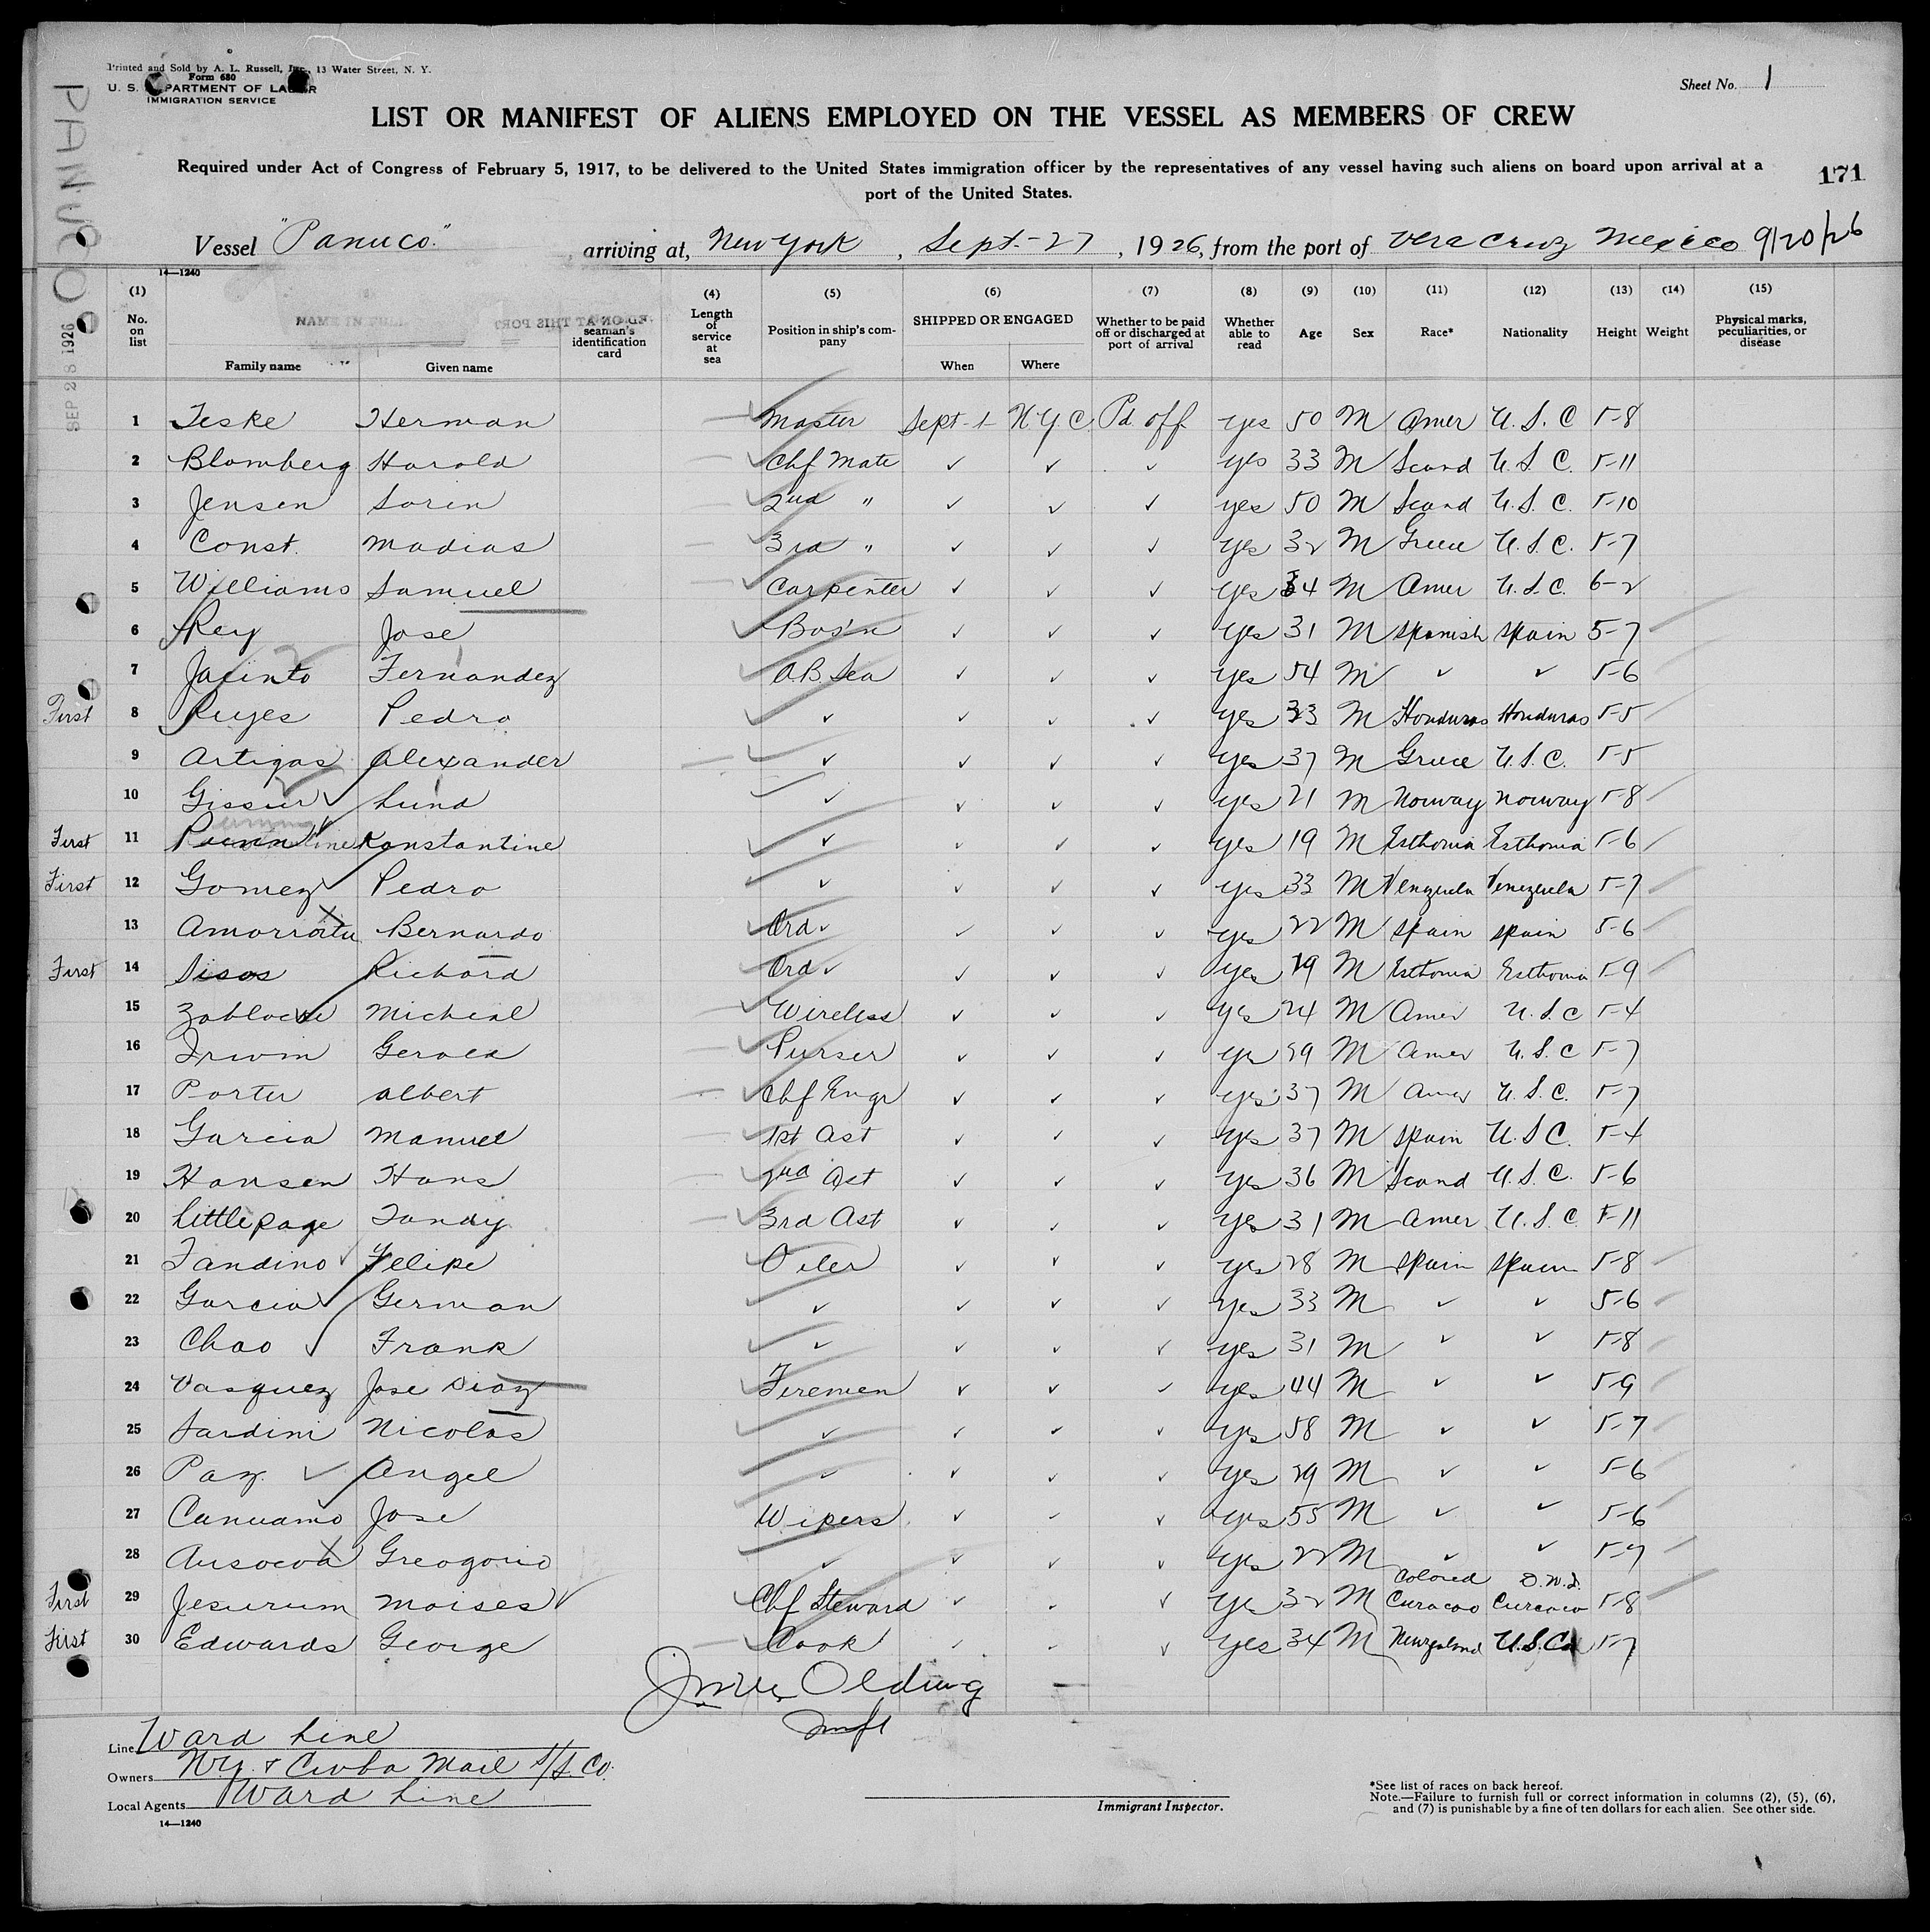 Printed and Sold by A. L. Russell, Inc., 13 Water Street, N. Y.
Form 680
U. S. DEPARTMENT OF LABOR
IMMIGRATION SERVICE
Sheet No. 1
PANUCO
SEP 28 1926
LIST OR MANIFEST OF ALIENS EMPLOYED ON THE VESSEL AS MEMBERS OF CREW
Required under Act of Congress of February 5, 1917, to be delivered to the United States immigration officer by the representatives of any vessel having such aliens on board upon arrival at a
port of the United States.
171
Vessel "Panuco" arriving at, New York, Sept. 27, 1926, from the port of Vera Cruz Mexico 9/20/26
14—1240
(1) (4) (5) (6) (7) (8) (9) (10) (11) (12) (13) (14) (15)
No. on list NAME IN FULL Family name Given name seaman's identification card Length of service at sea Position in ship's company SHIPPED OR ENGAGED When Where Whether to be paid off or discharged at port of arrival Whether able to read Age Sex Race* Nationality Height Weight Physical marks, peculiarities, or disease
1 Teske Herman — Master Sept-1 N.Y.C. Pd off yes 50 M Amer U.S.C 5-8
2 Blomberg Harold — Chf Mate ✓ ✓ ✓ yes 33 M Scand U.S.C. 5-11
3 Jensen Soren — 2nd " ✓ ✓ ✓ yes 50 M Scand U.S.C. 5-10
4 Const. Madias — 3rd " ✓ ✓ ✓ yes 32 M Greece U.S.C. 5-7
5 Williams Samuel — Carpenter ✓ ✓ ✓ yes 34 M Amer U.S.C. 6-2
6 Rey Jose Bos'n ✓ ✓ ✓ yes 31 M Spanish Spain 5-7
7 Jacinto Fernandez A.B. Sea ✓ ✓ ✓ yes 54 M ✓ ✓ 5-6
First 8 Reyes Pedro ✓ ✓ ✓ ✓ yes 33 M Honduras Honduras 5-5
9 Artigas Alexander — ✓ ✓ ✓ ✓ yes 37 M Greece U.S.C. 5-5
10 Gissur Lund ✓ ✓ ✓ ✓ yes 21 M Norway Norway 5-8
First 11 Konstantine ✓ ✓ ✓ ✓ yes 19 M Esthonia Esthonia 5-6
First 12 Gomez Pedro ✓ ✓ ✓ ✓ yes 33 M Venzuela Venezuela 5-7
13 Bernardo Ord ✓ ✓ ✓ ✓ yes 22 M Spain Spain 5-6
First 14 Sisas Richard Ord ✓ ✓ ✓ ✓ yes 19 M Esthonia Esthonia 5-9
15 Micheal — Wireless ✓ ✓ ✓ yes 24 M Amer U.S.C 5-4
16 Irwin Gerald — Purser ✓ ✓ ✓ yes 29 M Amer U.S.C 5-7
17 Porter Albert — Chf Engr ✓ ✓ ✓ yes 37 M Amer U.S.C. 5-7
18 Garcia Manuel — 1st Ast ✓ ✓ ✓ yes 37 M Spain U.S.C. 5-4
19 Hansen Hans — 2nd Ast ✓ ✓ ✓ yes 36 M Scand U.S.C. 5-6
20 Littlepage Tandy — 3rd Ast ✓ ✓ ✓ yes 31 M Amer U.S.C. 5-11
21 Fandino Felipe Oiler ✓ ✓ ✓ yes 28 M Spain Spain 5-8
22 Garcia German ✓ ✓ ✓ ✓ yes 33 M ✓ ✓ 5-6
23 Chao Frank ✓ ✓ ✓ ✓ yes 31 M ✓ ✓ 5-8
24 Vasquez Jose Diaz Firemen ✓ ✓ ✓ yes 44 M ✓ ✓ 5-9
25 Sardini Nicolas ✓ ✓ ✓ ✓ yes 58 M ✓ ✓ 5-7
26 Paz Angel ✓ ✓ ✓ ✓ yes 29 M ✓ ✓ 5-6
27 Jose Wipers ✓ ✓ ✓ yes 55 M ✓ ✓ 5-6
28 Greogorio ✓ ✓ ✓ ✓ yes 22 M ✓ ✓ 5-7
First 29 Jesurum Moises Chf Steward ✓ ✓ ✓ yes 32 M Colored Curacao D.W.I. Curacao 5-8
First 30 Edwards George — Cook ✓ ✓ ✓ yes 34 M Newzeland U.S.C. 5-7
Olding
Line Ward Line
Owners N.Y. & Cuba Mail S/S. Co.
Local Agents Ward Line
14—1240
Immigrant Inspector.
*See list of races on back hereof.
Note.—Failure to furnish full or correct information in columns (2), (5), (6),
and (7) is punishable by a fine of ten dollars for each alien. See other side.